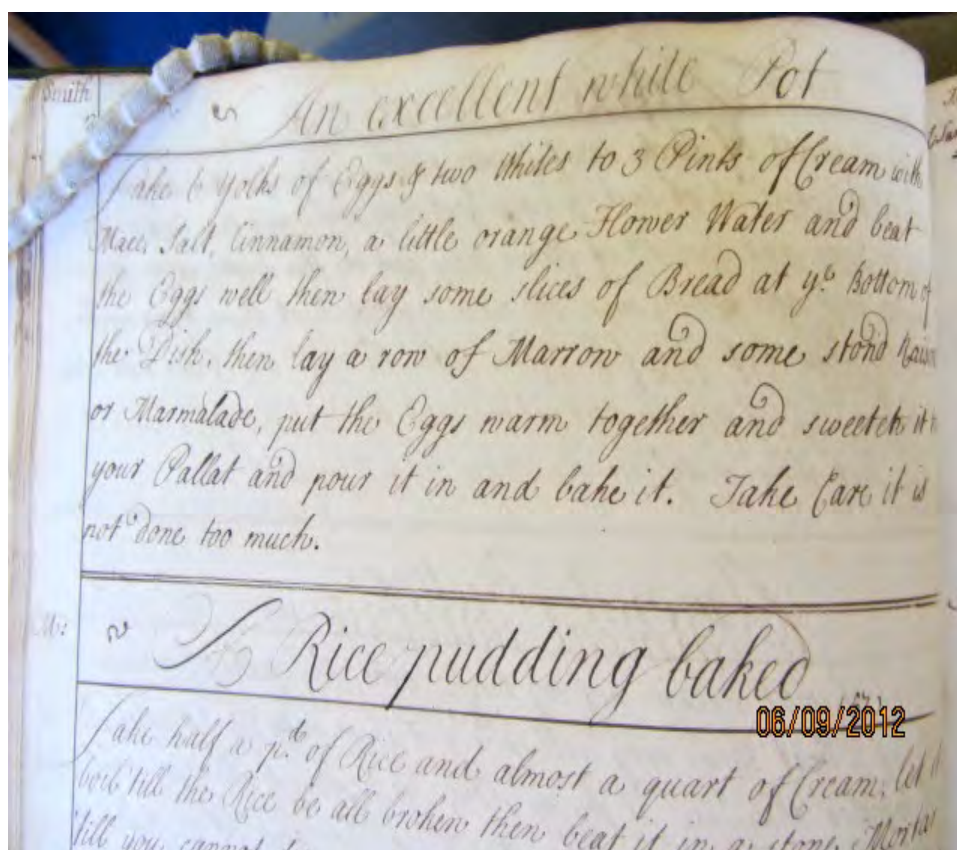 Smith
An excellent white Pot
Take 6 yolks of Eggs & two Whites to 3 Pints of Cream with
Mace, Salt, Cinnamon, a little orange Flower Water and beat
the Eggs well then lay some slices of Bread at yͤ Bottom of
the Dish, then lay a row of Marrow and some ston'd Raisins
or Marmalade, put the Eggs warm together and sweeten it to
your Pallat and pour it in and bake it. Take Care it is
not done too much.
A Rice pudding baked
06/09/2012
Take half a of Rice and almost a quart of Cream, let it
boil till the Rice be all broken then beat it in a stone Mortar
till you cannot